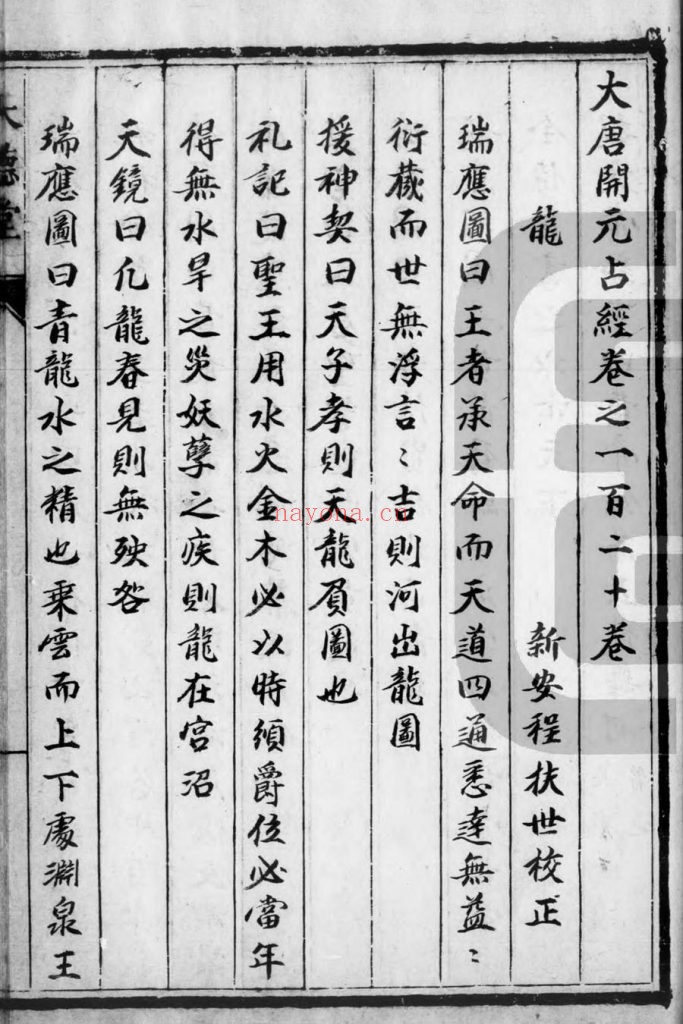 大唐開元占經卷之一百二十卷
龍　新安程扶世校正
瑞應圖曰王者承天命而天道四通悉達無益〻
衍藏而世無浮言〻吉則河出龍圖
援神契曰天子孝則天龍負圖也
礼記曰聖王用水火金木必以時須爵位必當年
得無水旱之災妖孽之疾則龍在宮沼
天鏡曰凢龍春見則無殃咎
瑞應圖曰青龍水之精也乗雲而上下處淵泉王
大德堂
nayona.cn